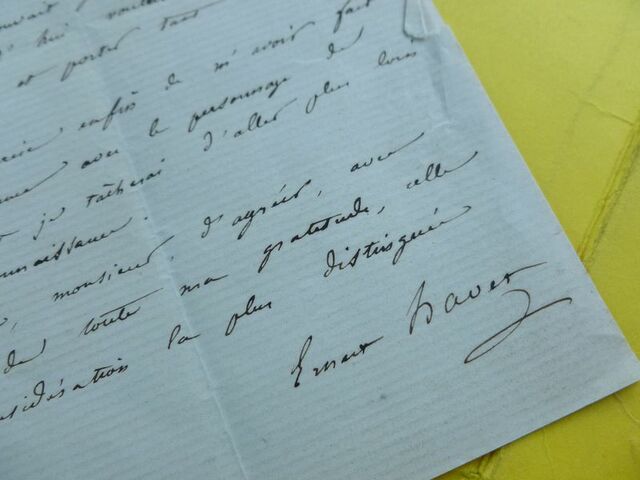 et porter tant
enfin de m'avoir fait
avec le personnage de
je tâcherai d'aller plus loin
connaissance.
monsieur, d'agréer, avec
de toute ma gratitude, celle
considération la plus distinguée
Ernest Havet